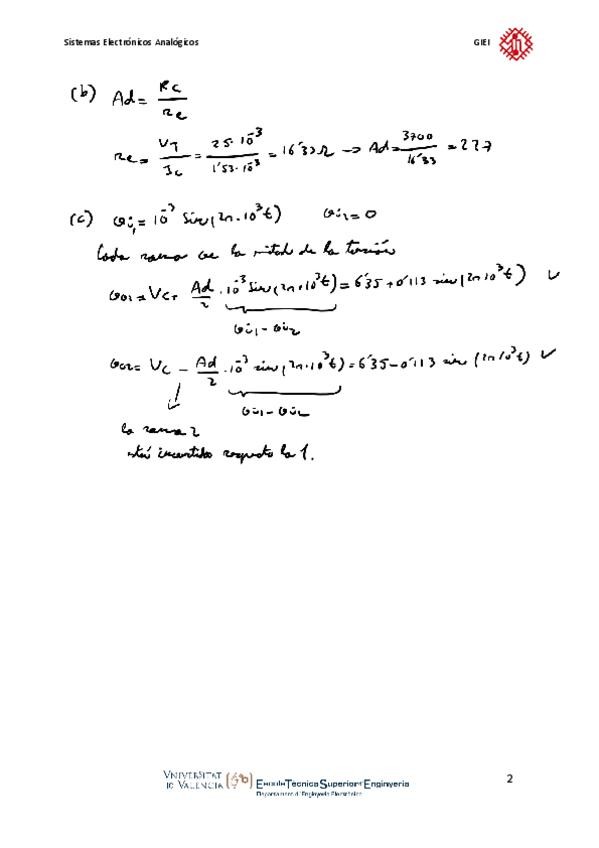 Sistemas Electrónicos Analógicos GIEI
(b) Ad = Rc / re
re = VT / Ic = 25·10⁻³ / 1'53·10⁻³ = 16'33 Ω → Ad = 3700 / 16'33 = 227
(c) vi₁ = 10⁻³ sin(2π·10³t) vi₂ = 0
Cada rama ve la mitad de la tensión
vo1 = Vc + Ad/2 · 10⁻³ sin(2π·10³t) = 6'35 + 0'113 sin(2π10³t) ✓
vi1 - vi2
vo2 = Vc - Ad/2 · 10⁻³ sin(2π·10³t) = 6'35 - 0'113 sin(2π10³t) ✓
vi1 - vi2
la rama 2
está invertida respecto la 1.
VNIVERSITAT
ID VALÈNCIA Escola Tècnica Superior d'Enginyeria
Departament d'Enginyeria Electrònica
2